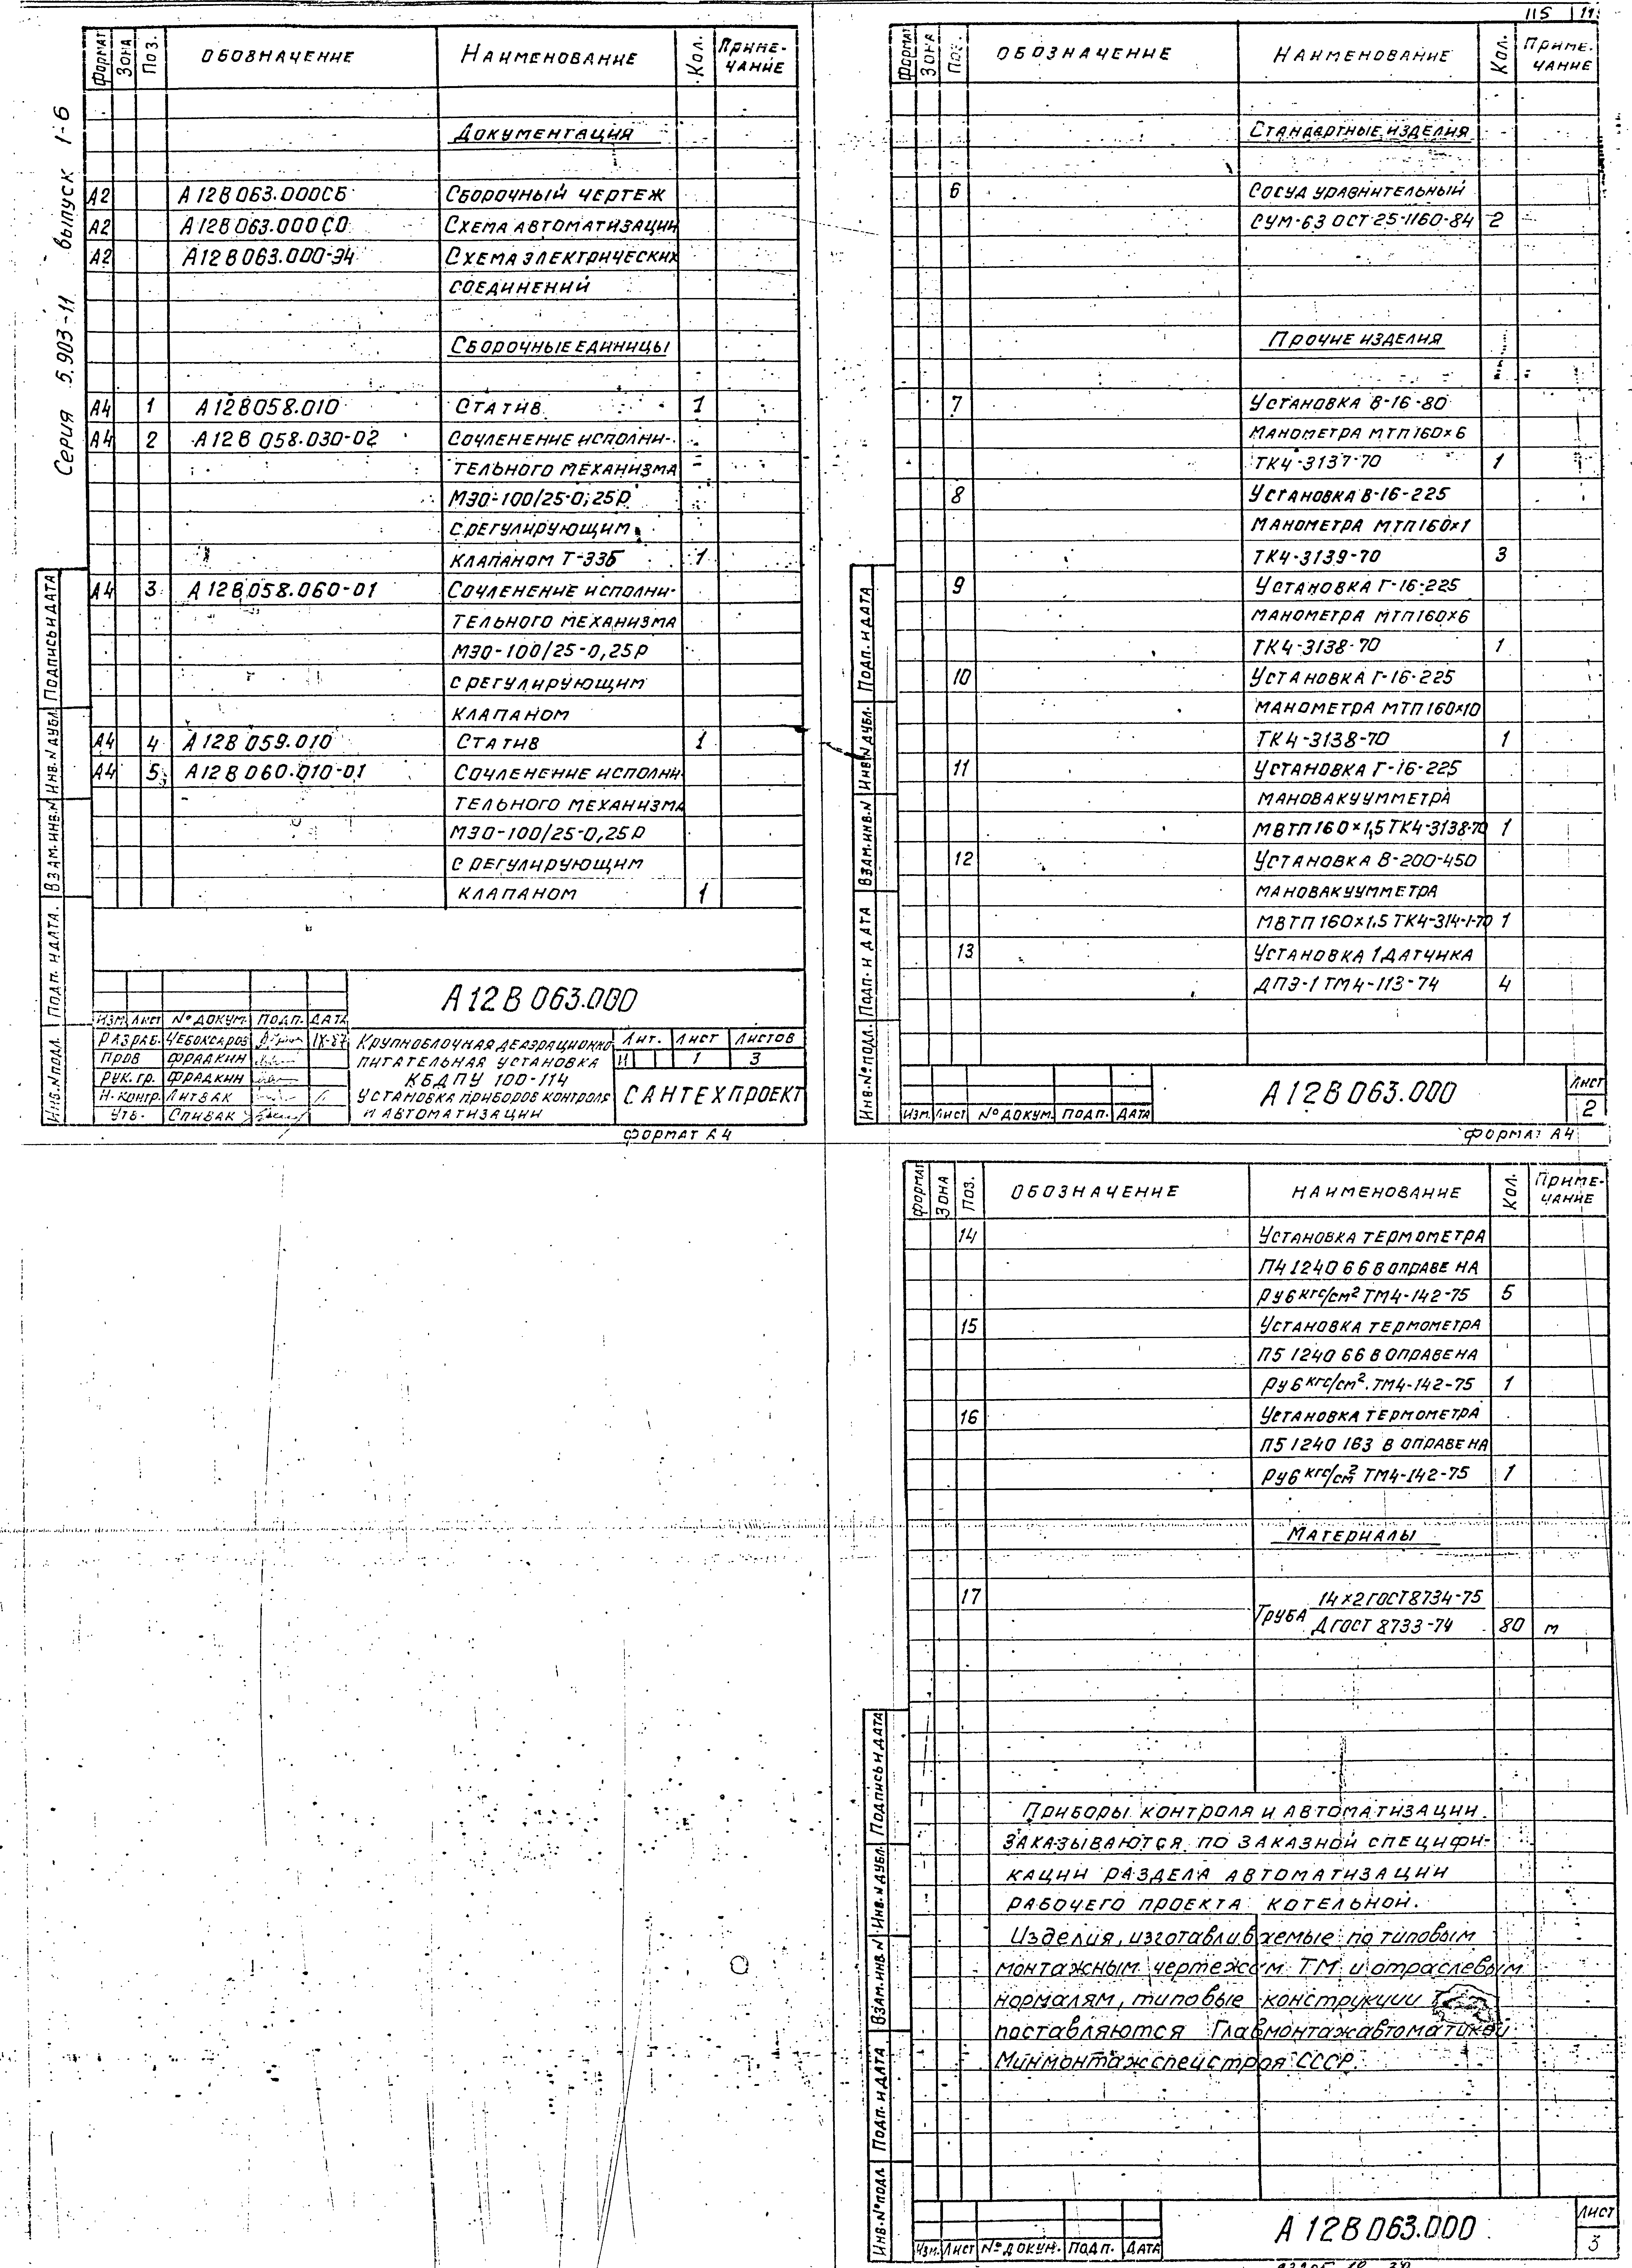 115
Серия 5.903-11 выпуск 1-6
Формат Зона Поз. Обозначение Наименование Кол. Примечание
Документация
А2 А12В063.000СБ Сборочный чертеж
А2 А12В063.000СО Схема автоматизации
А2 А12В063.000-Э4 Схема электрических
соединений
Сборочные единицы
А4 1 А12В058.010 Статив 1
А4 2 А12В058.030-02 Сочленение исполни-
тельного механизма
МЭО-100/25-0,25Р
с регулирующим
клапаном Т-33б 1
А4 3 А12В058.060-01 Сочленение исполни-
тельного механизма
МЭО-100/25-0,25Р
с регулирующим
клапаном
А4 4 А12В059.010 Статив 1
А4 5 А12В060.010-01 Сочленение исполни-
тельного механизма
МЭО-100/25-0,25Р
с регулирующим
клапаном 1
Инв.№подл. Подп. и дата. Взам.инв.№ Инв.№дубл. Подпись и дата
А12В063.000
Изм. Лист № докум. Подп. Дата
Разраб. Чебоксаров IX-87
Пров Фрадкин
Рук. гр. Фрадкин
Н. контр. Литвак
Утв. Спивак
Крупноблочная деаэрационно
питательная установка
КБДПУ 100-114
Установка приборов контроля
и автоматизации
Лит. Лист Листов
И 1 3
Сантехпроект
Формат А4
Формат Зона Поз. Обозначение Наименование Кол. Примечание
Стандартные изделия
6 Сосуд уравнительный
СУМ-63 ОСТ 25-1160-84 2
Прочие изделия
7 Установка В-16-80
манометра МТП160×6
ТК4-3137-70 1
8 Установка В-16-225
манометра МТП160×1
ТК4-3139-70 3
9 Установка Г-16-225
манометра МТП160×6
ТК4-3138-70 1
10 Установка Г-16-225
манометра МТП160×10
ТК4-3138-70 1
11 Установка Г-16-225
мановакуумметра
МВТП160×1,5 ТК4-3138-70 1
12 Установка В-200-450
мановакуумметра
МВТП160×1,5 ТК4-3141-70 1
13 Установка 1 датчика
ДПЭ-1 ТМ4-113-74 4
Инв.№подл. Подп. и дата Взам.инв.№ Инв.№дубл. Подп. и дата
Изм. Лист № докум. Подп. Дата
А12В063.000
Лист
2
Формат А4
Формат Зона Поз. Обозначение Наименование Кол. Примечание
14 Установка термометра
П4 1240 66 в оправе на
Ру6 кгс/см² ТМ4-142-75 5
15 Установка термометра
П5 1240 66 в оправе на
Ру6 кгс/см² ТМ4-142-75 1
16 Установка термометра
П5 1240 163 в оправе на
Ру6 кгс/см² ТМ4-142-75 1
Материалы
17 Труба 14×2 ГОСТ 8734-75
Д ГОСТ 8733-74 80 м
Приборы контроля и автоматизации
заказываются по заказной специфи-
кации раздела автоматизации
рабочего проекта котельной.
Изделия, изготавливаемые по типовым
монтажным чертежам ТМ и отраслевым
нормалям, типовые конструкции
поставляются Главмонтажавтоматикой
Минмонтажспецстроя СССР.
Инв.№подл. Подп. и дата Взам.инв.№ Инв.№дубл. Подпись и дата
Изм. Лист № докум. Подп. Дата
А12В063.000
Лист
3